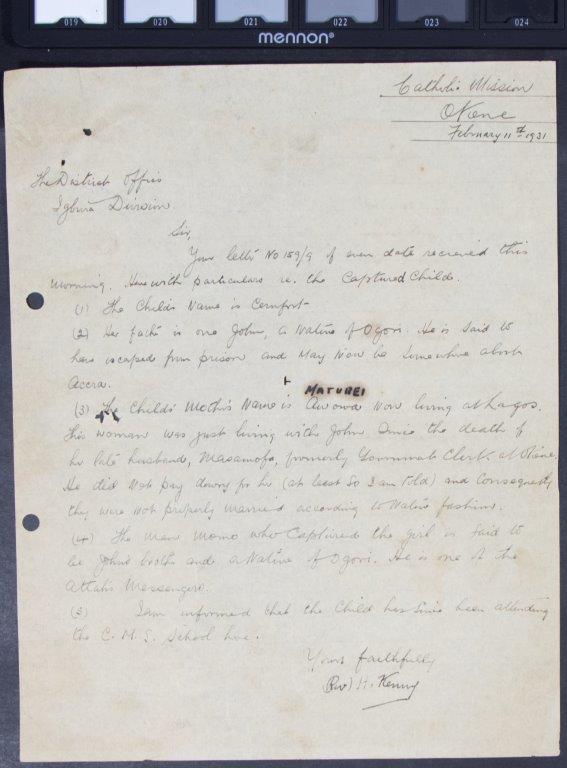 019 020 021 022 023 024
mennon®
Catholic Mission
Okene
February 11th 1931
The District Offis
Igbira Division
Sir,
Your letter No 159/9 of even date recieved this
morning. Herewith particulars re. the Captured Child.
(1) The Childs Name is Comfort
(2) Her father is one John, a Native of Ogori. He is said to
have escaped from prison and may now be somewhere about
Accra.
MATUBEI
(3) The Childs Mother's Name is Awowa Now living at Lagos.
This woman was just living with John Since the death of
her late husband, Masamofa, formerly Clerk at Okene,
He did not pay dowry for her (at least so I am told) and Consequently
they were not properly married according to Native fashion.
(4) The man Momo who Captured the girl is Said to
be John's brother and a Native of Ogori. He is one of the
Attah's Messengers.
(5) I am informed that the Child has Since been attending
the C.M.S. School here.
Yours faithfully
(Rev) H. Kenny